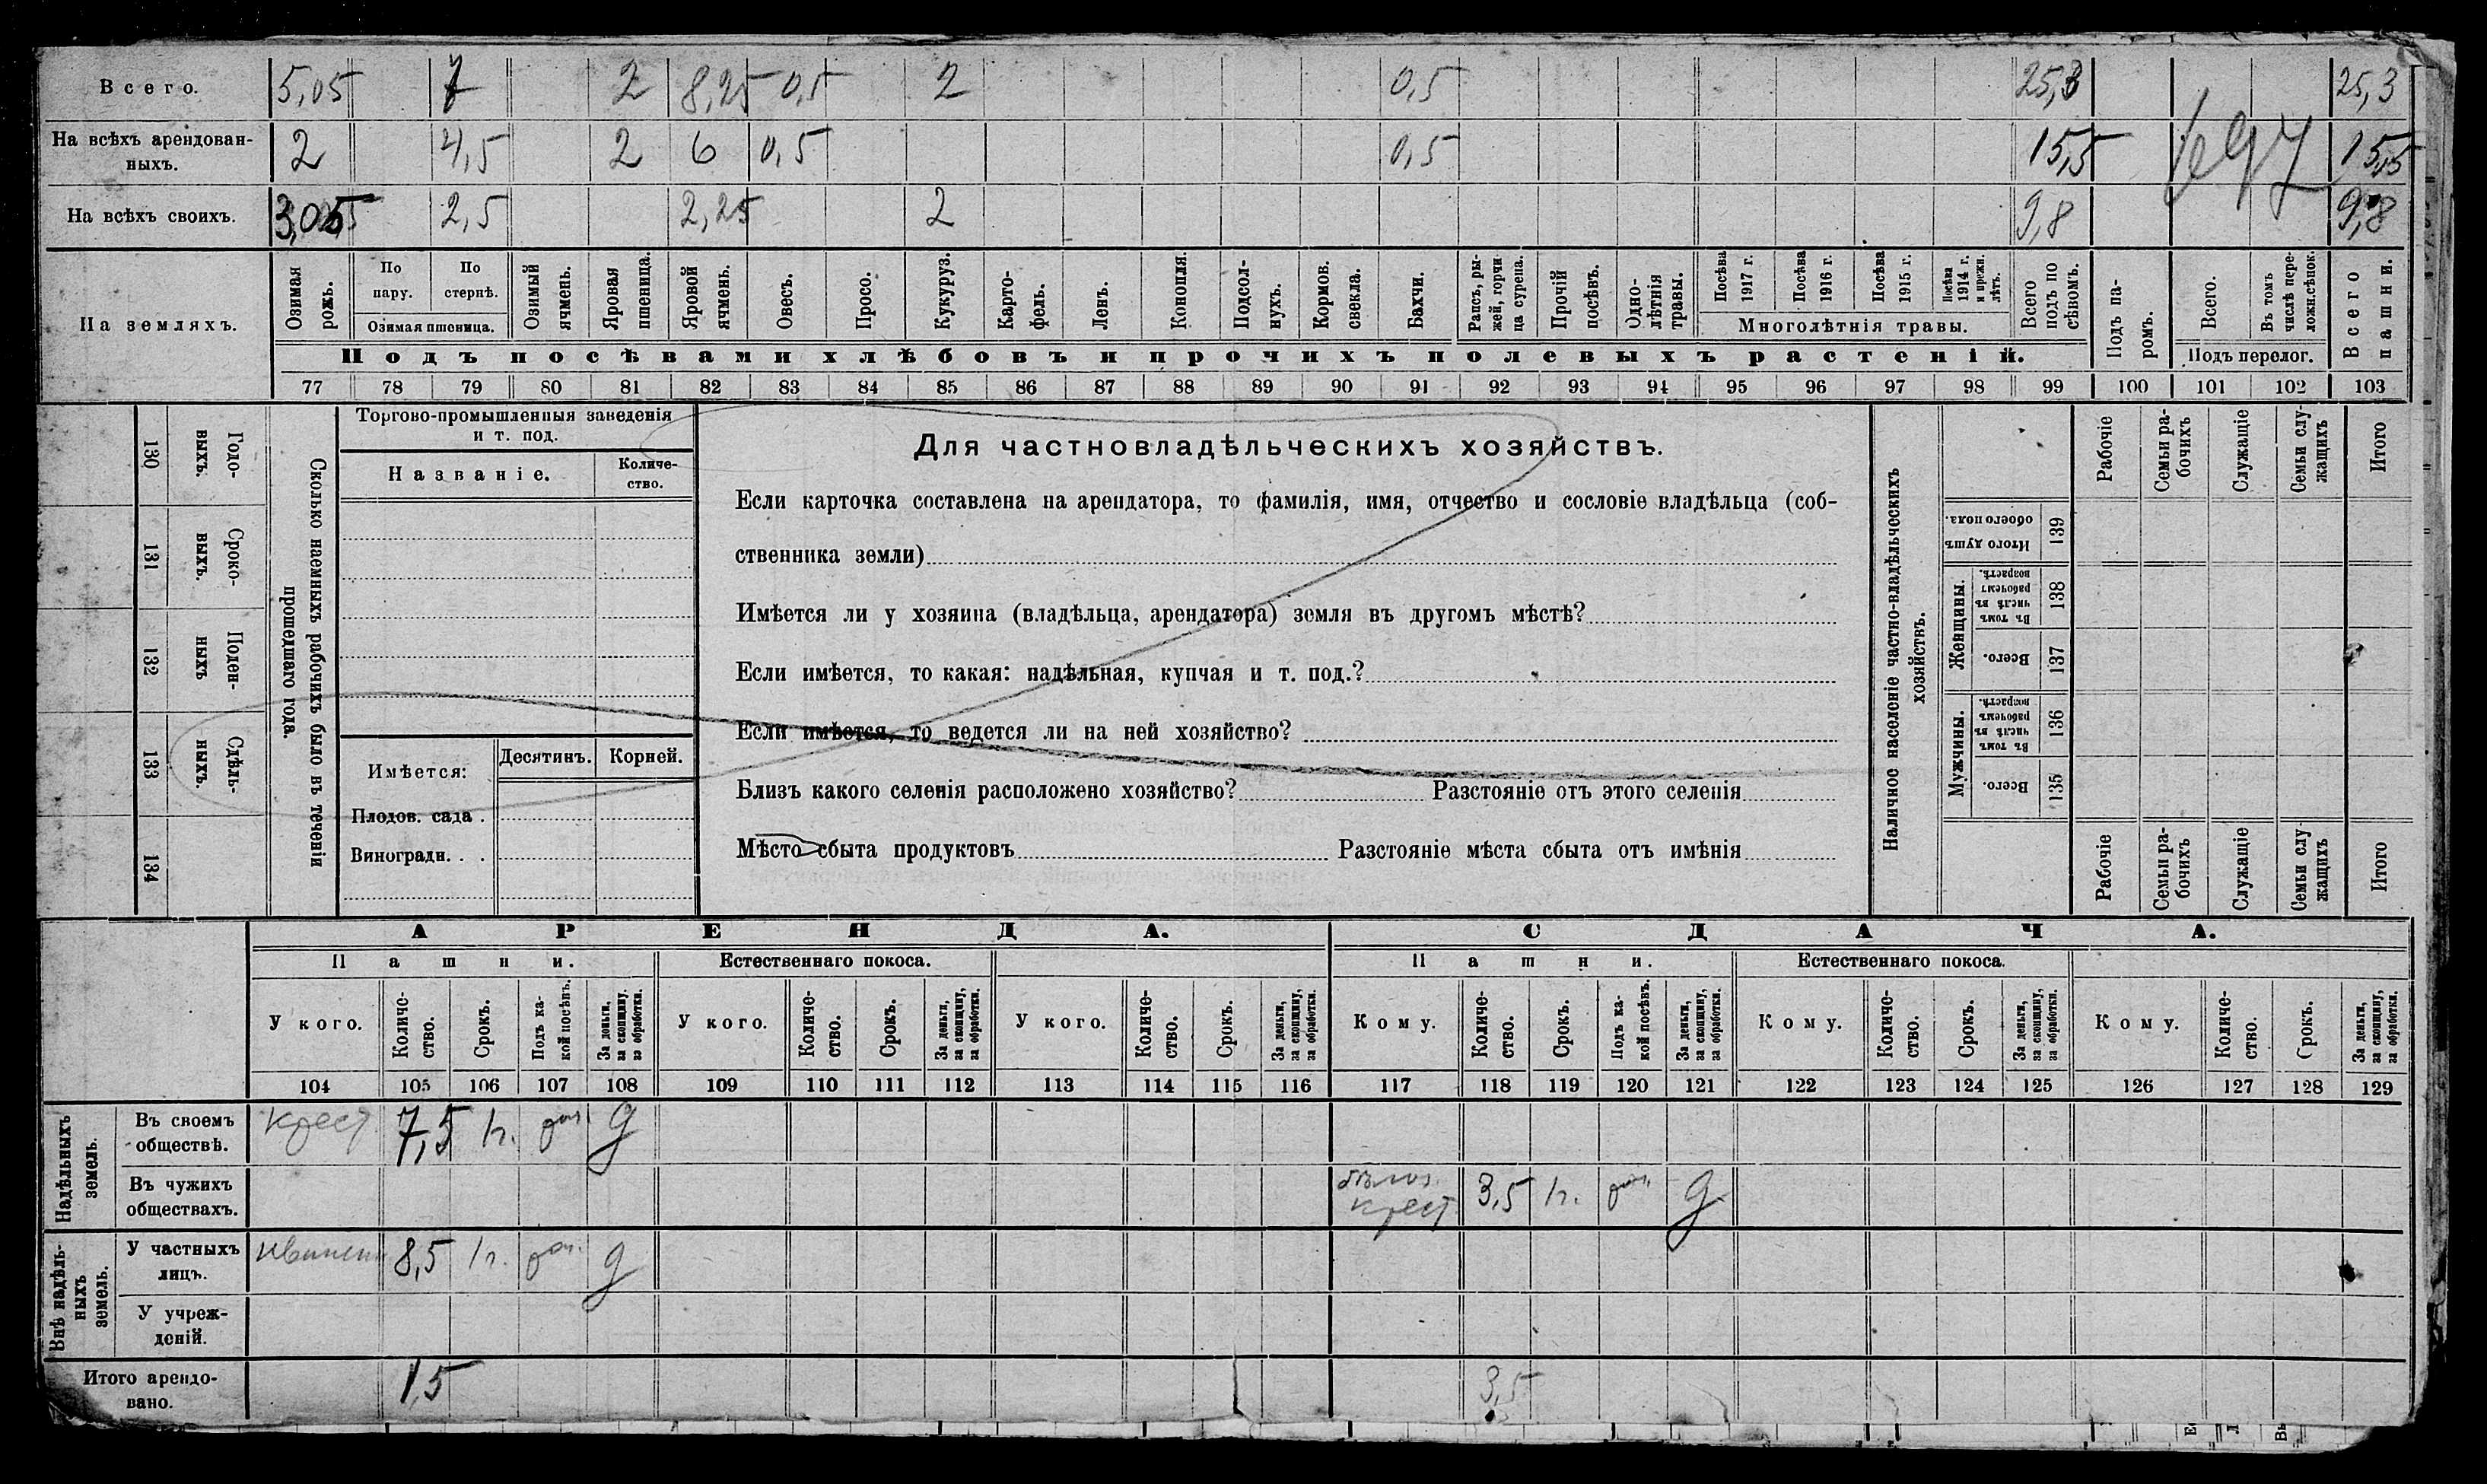 Всего. 5,05 7 2 8,25 0,5 2 0,5 25,3 25,3
На всѣхъ арендован-
ныхъ. 2 4,5 2 6 0,5 0,5 15,5 15,5
На всѣхъ своихъ. 3,05 2,5 2,25 2 9,8 9,8
На земляхъ.
Озимая рожь.
По пару.
По стернѣ.
Озимая пшеница.
Озимый ячмень.
Яровая пшеница.
Яровой ячмень.
Овесъ.
Просо.
Кукуруз.
Карто-
фель.
Ленъ.
Конопля.
Подсол-
нухъ.
Кормов. свекла.
Бахчи.
Рапсъ, ры-
жей, горчи-
ца сурепа.
Прочій посѣвъ.
Одно-
лѣтнія травы.
Посѣва 1917 г.
Посѣва 1916 г.
Посѣва 1915 г.
Посѣва 1914 г. и прежн. лѣтъ.
Многолѣтнія травы.
Всего подъ по
сѣвомъ.
Подъ па-
ромъ.
Всего.
Въ томъ числѣ пере-
ложн.сѣнок.
Подъ перелог.
Всего пашни.
Подъ посѣвами хлѣбовъ и прочихъ полевыхъ растеній.
77 78 79 80 81 82 83 84 85 86 87 88 89 90 91 92 93 94 95 96 97 98 99 100 101 102 103
130 Годо-
выхъ.
131 Сроко-
выхъ.
132 Поден-
ныхъ
133 Сдѣль-
ныхъ.
134
Сколько наемныхъ рабочихъ было въ теченіи
прошедшаго года.
Торгово-промышленныя заведенія
и т. под.
Названіе.
Количе-
ство.
Имѣется:
Десятинъ.
Корней.
Плодов. сада .
Виноградн. . .
Для частновладѣльческихъ хозяйствъ.
Если карточка составлена на арендатора, то фамилія, имя, отчество и сословіе владѣльца (соб-
ственника земли)
Имѣется ли у хозяина (владѣльца, арендатора) земля въ другомъ мѣстѣ?
Если имѣется, то какая: надѣльная, купчая и т. под.?
Если имѣется, то ведется ли на ней хозяйство?
Близъ какого селенія расположено хозяйство? Разстояніе отъ этого селенія
Мѣсто сбыта продуктовъ Разстояніе мѣста сбыта отъ имѣнія
Наличное населеніе частно-владѣльческихъ
хозяйствъ.
Рабочіе
Семьи ра-
бочихъ
Служащіе
Семьи слу-
жащихъ
Итого
Итого душъ обоего пола. 139
Женщины.
Въ томъ числѣ въ рабочемъ возрастѣ. 138
Всего. 137
Мужчины.
Въ томъ числѣ въ рабочемъ возрастѣ. 136
Всего. 135
Рабочіе
Семьи ра-
бочихъ
Служащіе
Семьи слу-
жащихъ
Итого
АРЕНДА. СДАЧА.
Пашни. Естественнаго покоса. Пашни. Естественнаго покоса.
У кого.
Количе-
ство.
Срокъ.
Подъ ка-
кой посѣвъ.
За деньги,
за скопщину,
за обработки.
У кого.
Количе-
ство.
Срокъ.
За деньги,
за скопщину,
за обработки.
У кого.
Количе-
ство.
Срокъ.
За деньги,
за скопщину,
за обработки.
Кому.
Количе-
ство.
Срокъ.
Подъ ка-
кой посѣвъ.
За деньги,
за скопщину,
за обработки.
Кому.
Количе-
ство.
Срокъ.
За деньги,
за скопщину,
за обработки.
Кому.
Количе-
ство.
Срокъ.
За деньги,
за скопщину,
за обработки.
104 105 106 107 108 109 110 111 112 113 114 115 116 117 118 119 120 121 122 123 124 125 126 127 128 129
Надѣльныхъ
земель.
Въ своемъ
обществѣ. Крест. 7,5 1г. д
Въ чужихъ
обществахъ. крест. 3,5 1г. д
Внѣ надѣль-
ныхъ
земель.
У частныхъ
лицъ. 8,5 1г. д
У учреж-
деній.
Итого арендо-
вано. 15 3,5